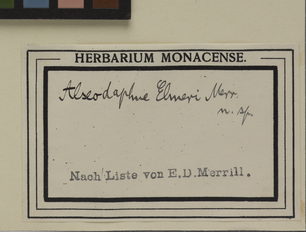 HERBARIUM MONACENSE.
Alseodaphne Elmeri Merr.
n. sp.
Nach Liste von E.D.Merrill.